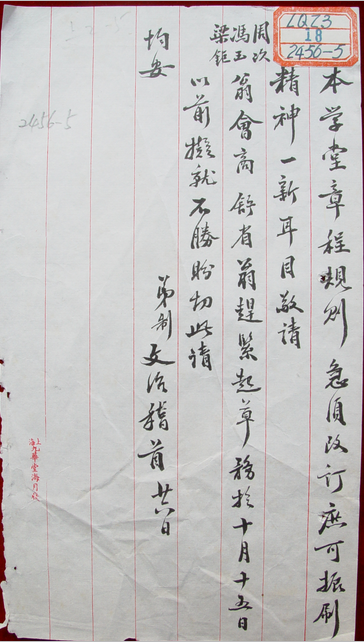 LQZ3
18
2456-5
本学堂章程規則急須改訂庶可振刷
精神一新耳目敬請
周玖
馮玉
梁鉅
翁會商舒省翁趕緊起草務於十月十五日
以前擬就不勝盼切此請
均安
弟制文治稽首 廿 日
2456-5
上海九華堂